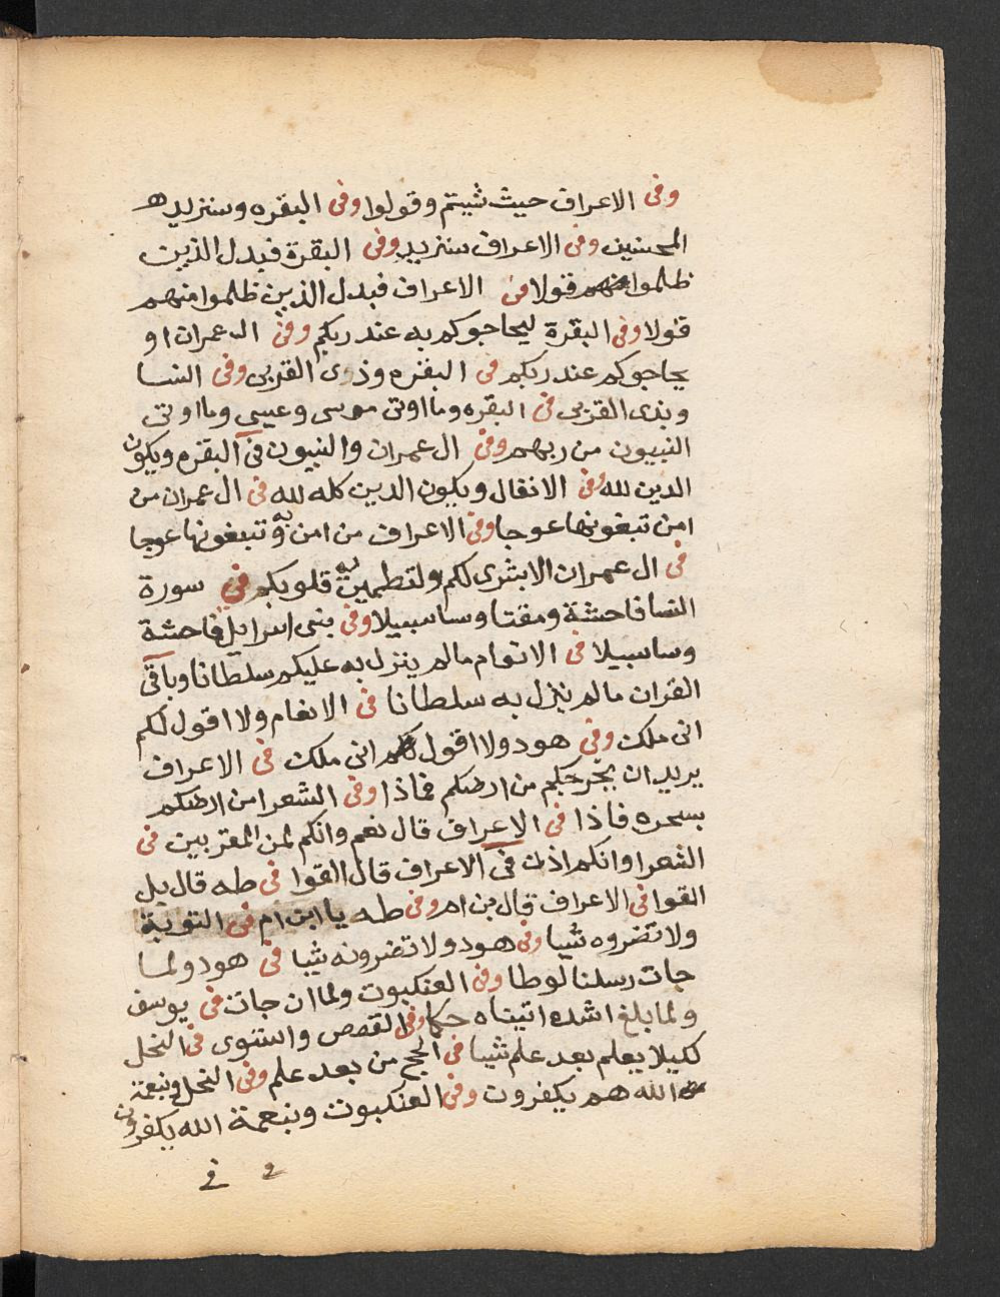 وفى الاعراف حيث شيتم وقولوا وفى البقره وسنزيد
المحسنين وفى الاعراف سنزيد وفى البقرة فبدل الذين
ظلموا منهم قولا فى الاعراف فبدل الذين ظلموا منهم
قولا وفى البقرة ليحاجوكم به عند ربكم وفى ال عمران او
يحاجوكم عند ربكم فى البقره وذوى القربى وفى النسا
وبذى القربى فى البقره وما اوتى موسى وعيسى وما اوتى
النبيون من ربهم وفى ال عمران والنبيون فى البقره ويكون
الدين لله وفى الانفال ويكون الدين كله لله فى ال عمران من
امن تبغونها عوجا وفى الاعراف من امن به وتبغونها عوجا
فى ال عمران الا بشرى لكم ولتطمين به قلوبكم فى سورة
النسا فاحشة ومقتا وسا سبيلا وفى بنى اسرايل فاحشة
وسا سبيلا فى الانعام مالم ينزل به عليكم سلطانا وباقى
القران مالم ينزل به سلطانا فى الانعام ولا اقول لكم
انى ملك وفى هود ولا اقول انى ملك فى الاعراف
يريد ان يخرجكم من ارضكم فماذا وفى الشعرا من ارضكم
بسحره فماذا فى الاعراف قال نعم وانكم لمن المقربين فى
الشعرا وانكم اذن فى الاعراف قال القوا فى طه قال بل
القوا فى الاعراف قال بن ام وفى طه يا ابن ام فى التوبة
ولا تضروه شيا وفى هود ولا تضرونه شيا فى هود ولما
جات رسلنا لوطا وفى العنكبوت ولما ان جات فى يوسف
ولما بلغ اشده اتيناه حكما وفى القصص واستوى فى النحل
لكيلا يعلم بعد علم شيا فى الحج من بعد علم وفى النحل وبنعمة
الله هم يكفرون وفى العنكبوت وبنعمة الله يكفرون
و فى